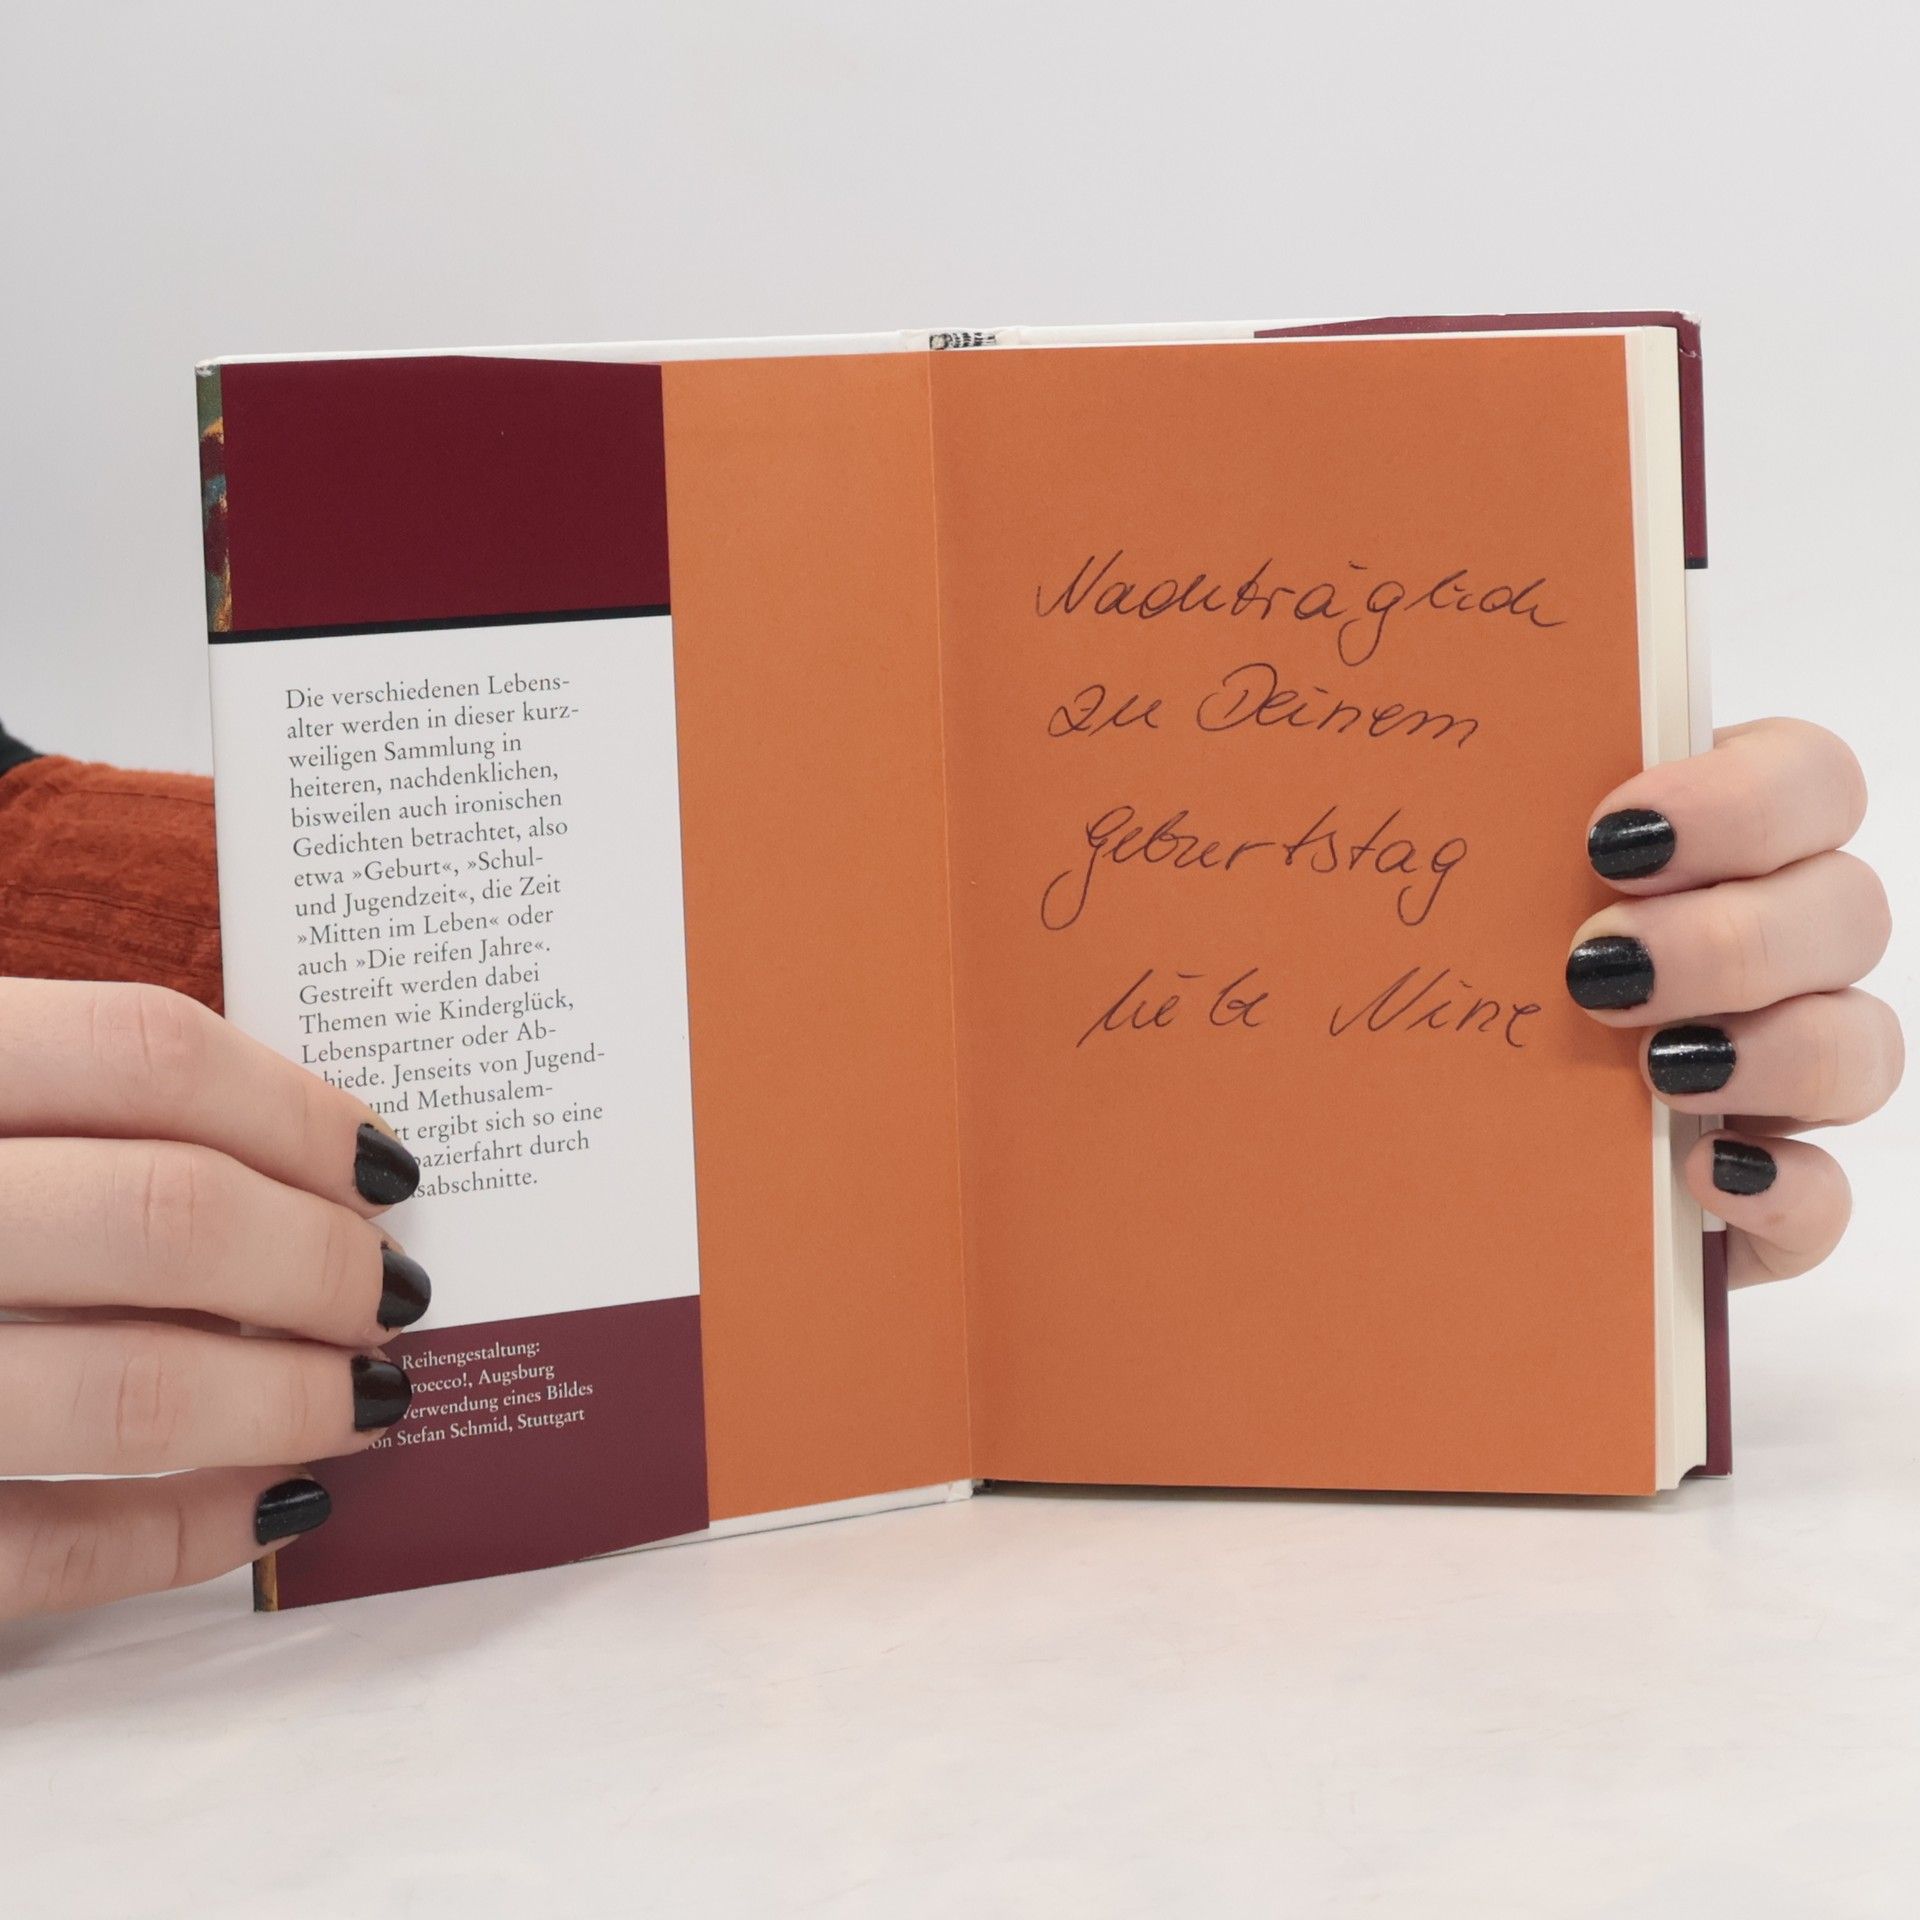 Die verschiedenen Lebens-
alter werden in dieser kurz-
weiligen Sammlung in
heiteren, nachdenklichen,
bisweilen auch ironischen
Gedichten betrachtet, also
etwa »Geburt«, »Schul-
und Jugendzeit«, die Zeit
»Mitten im Leben« oder
auch »Die reifen Jahre«.
Gestreift werden dabei
Themen wie Kinderglück,
Lebenspartner oder Ab-
hiede. Jenseits von Jugend-
und Methusalem-
tt ergibt sich so eine
pazierfahrt durch
sabschnitte.
Reihengestaltung:
roecco!, Augsburg
Verwendung eines Bildes
von Stefan Schmid, Stuttgart
Nachträglich
zu Deinem
Geburtstag
liebe Nine